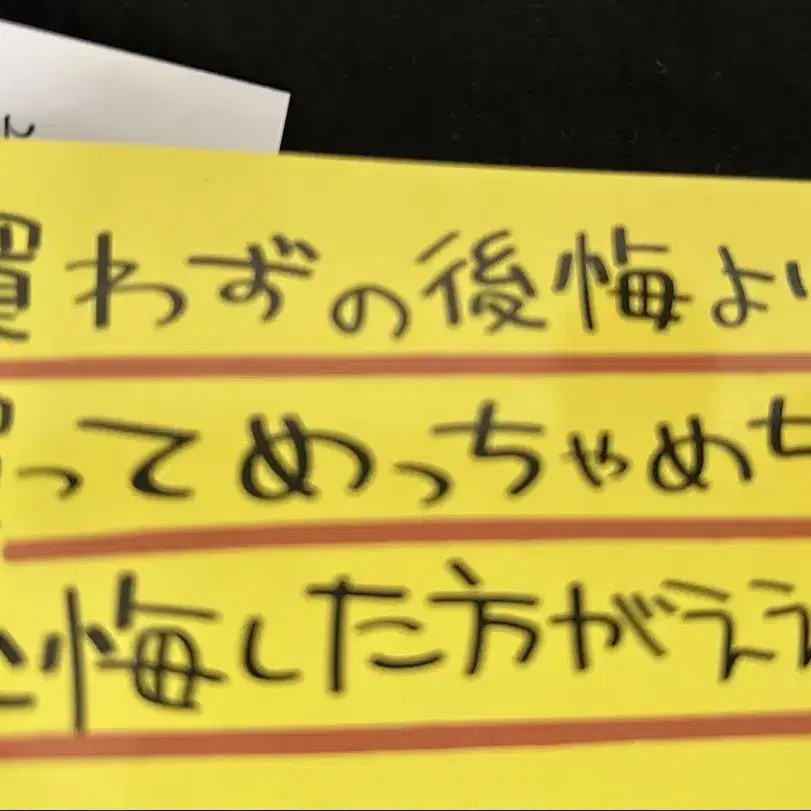 買わずの後悔よ
ってめっちゃめち
悔した方がええ